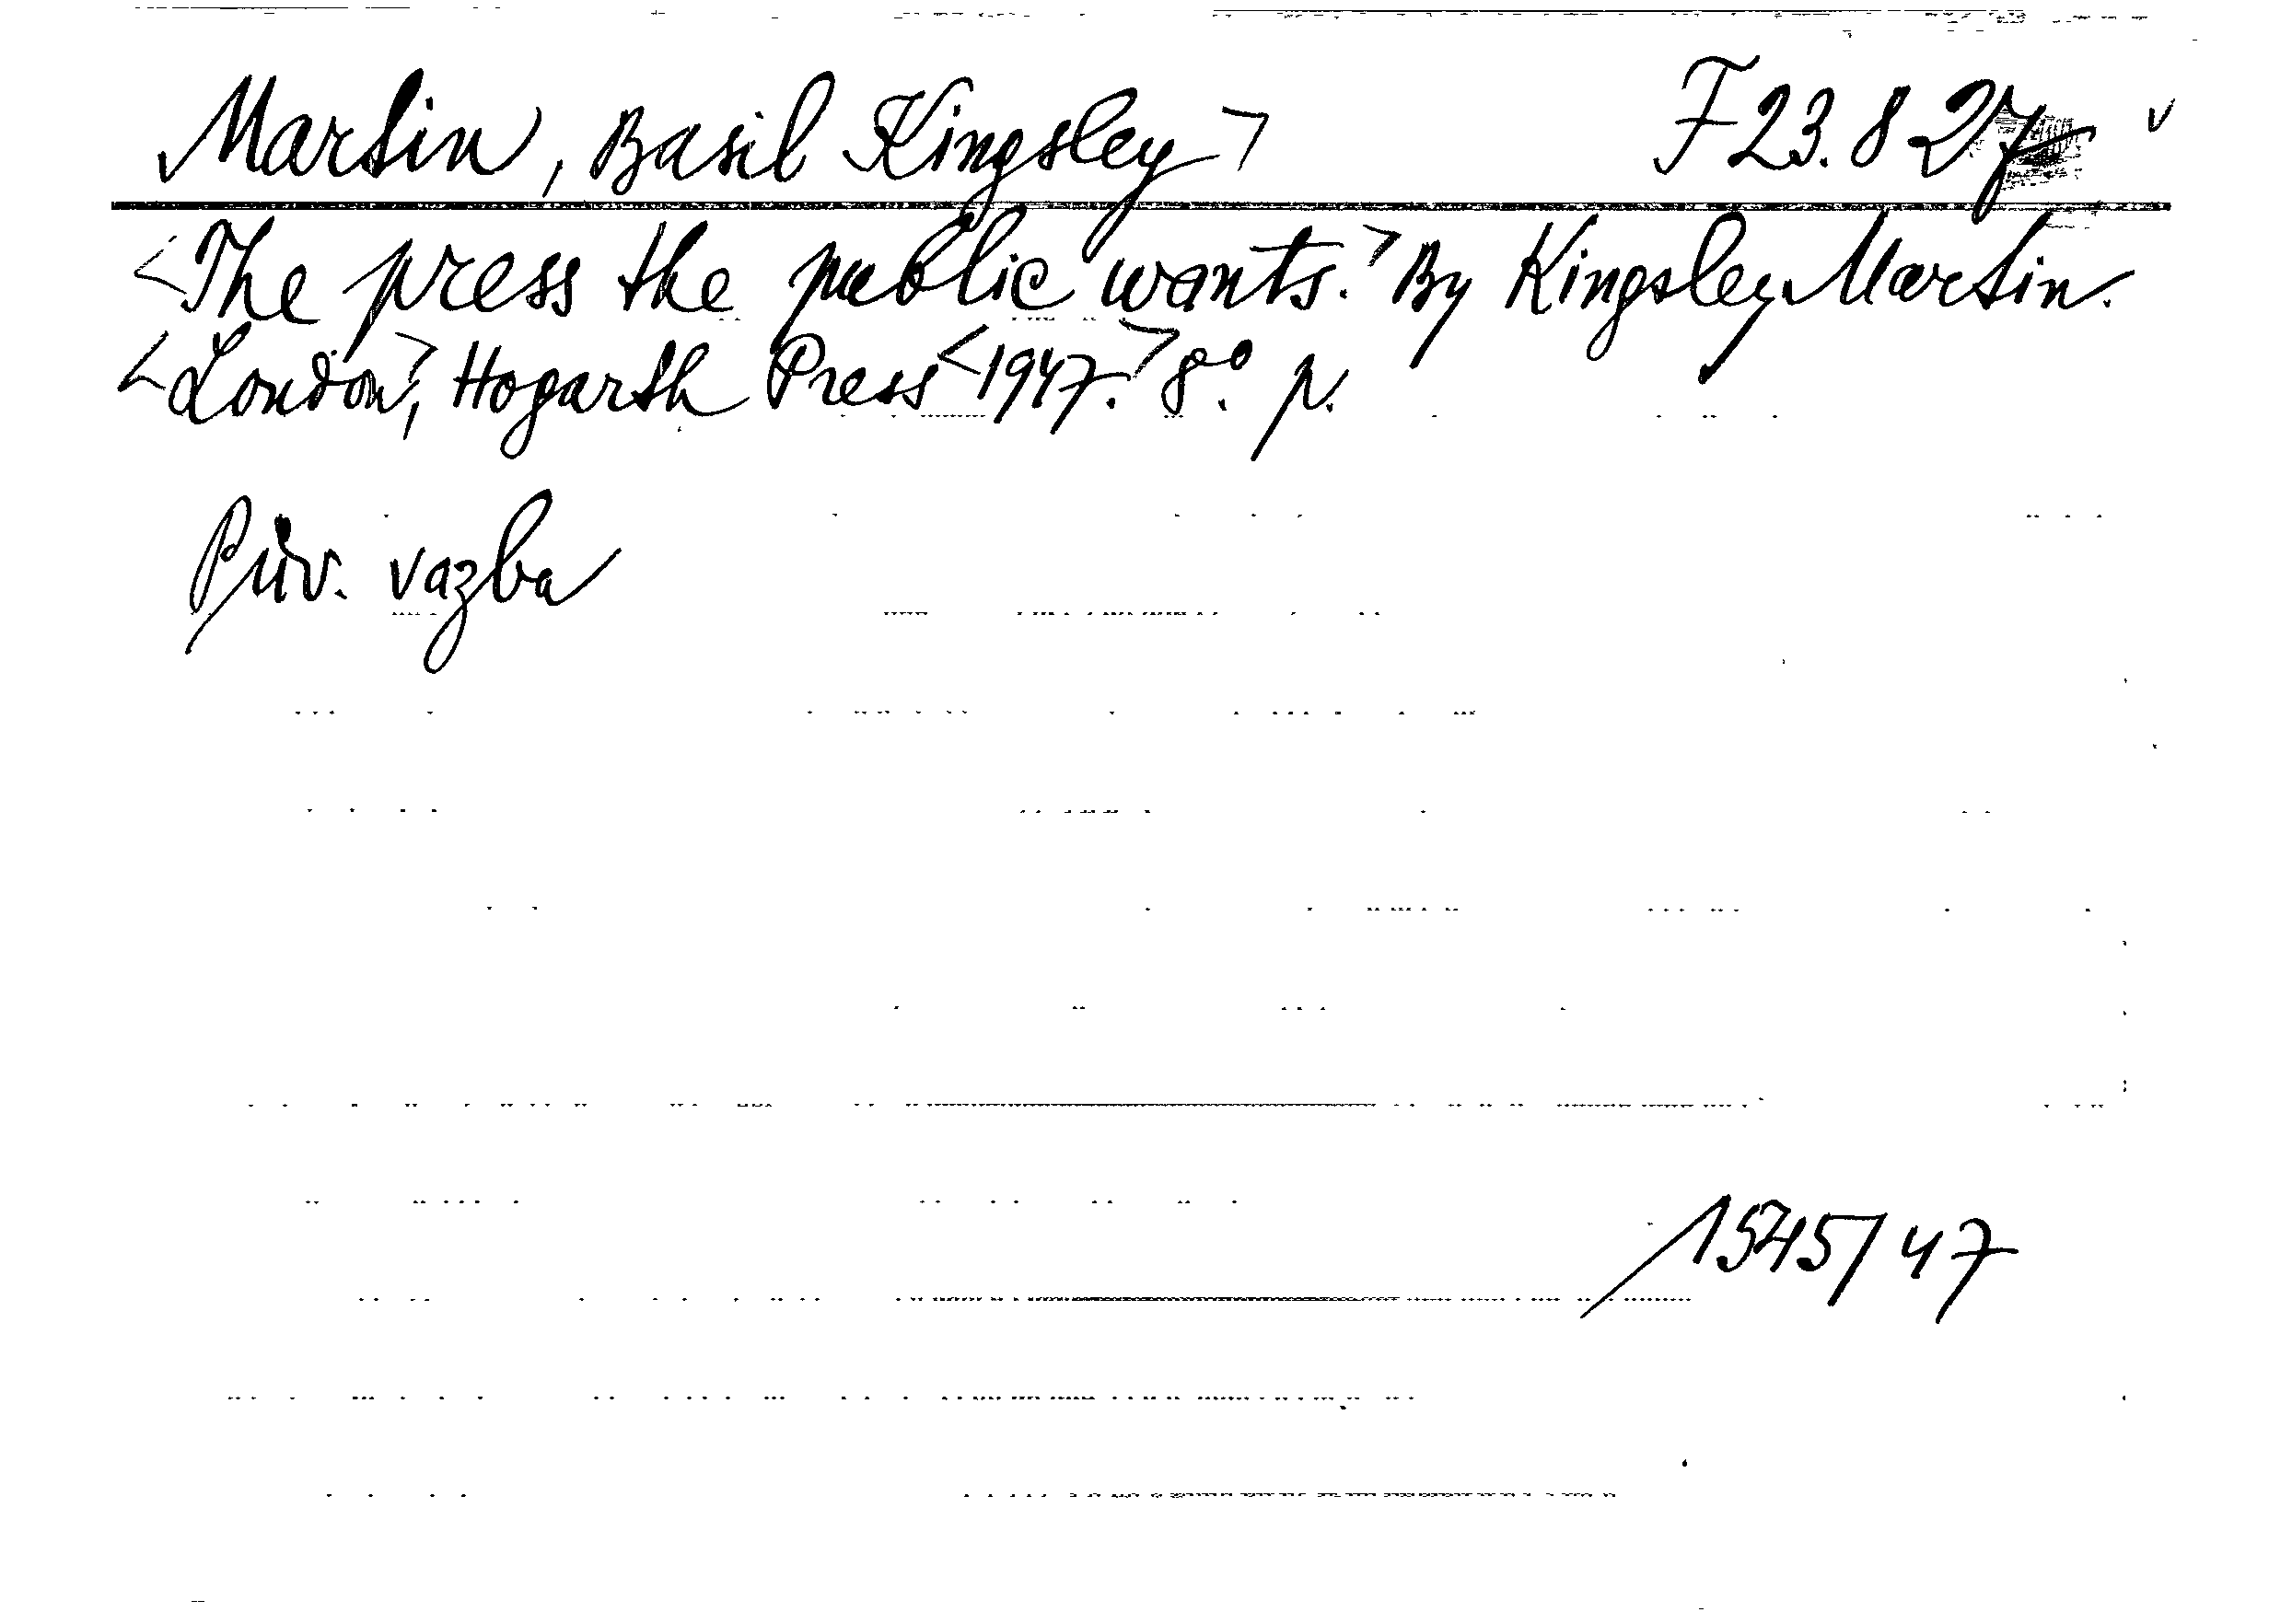 Martin, Basil Kingsley > F 23.827 v
<The press the public wants.> By Kingsley Martin.
<London>, Hogarth Press <1947.> 8°. p.
Pův. vazba
1545/47